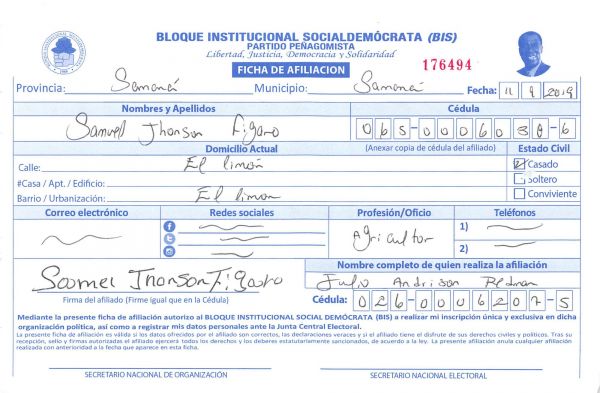 BLOQUE INSTITUCIONAL SOCIALDEMÓCRATA (BIS)
PARTIDO PEÑAGOMISTA
Libertad, Justicia, Democracia y Solidaridad
FICHA DE AFILIACION
176494
Provincia: Samaná Municipio: Samaná Fecha: 11 9 2019
Nombres y Apellidos Cédula
Samuel Jhonson Figaro 065-0006038-6
Domicilio Actual (Anexar copia de cédula del afiliado) Estado Civil
Calle: El limón Casado
#Casa / Apt. / Edificio: Soltero
Barrio / Urbanización: El limon Conviviente
Correo electrónico Redes sociales Profesión/Oficio Teléfonos
Agricultor 1)
2)
Nombre completo de quien realiza la afiliación
Jhonson Figaro Julio Andrison
Firma del afiliado (Firme igual que en la Cédula) Cédula: 026-0006207-5
Mediante la presente ficha de afiliación autorizo al BLOQUE INSTITUCIONAL SOCIAL DEMÓCRATA (BIS) a realizar mi inscripción única y exclusiva en dicha
organización política, así como a registrar mis datos personales ante la Junta Central Electoral.
La presente ficha de afiliación es válida si los datos ofrecidos por el afiliado son correctos, las declaraciones veraces y si el afiliado tiene el disfrute de sus derechos civiles y políticos. Tras su
recepción, sello y firmas autorizadas el afiliado ejercerá todos los derechos y los deberes estatutariamente sancionados, de acuerdo a la ley. La presente afiliación anula cualquier afiliación
realizada con anterioridad a la fecha que aparece en esta ficha.
SECRETARIO NACIONAL DE ORGANIZACIÓN SECRETARIO NACIONAL ELECTORAL